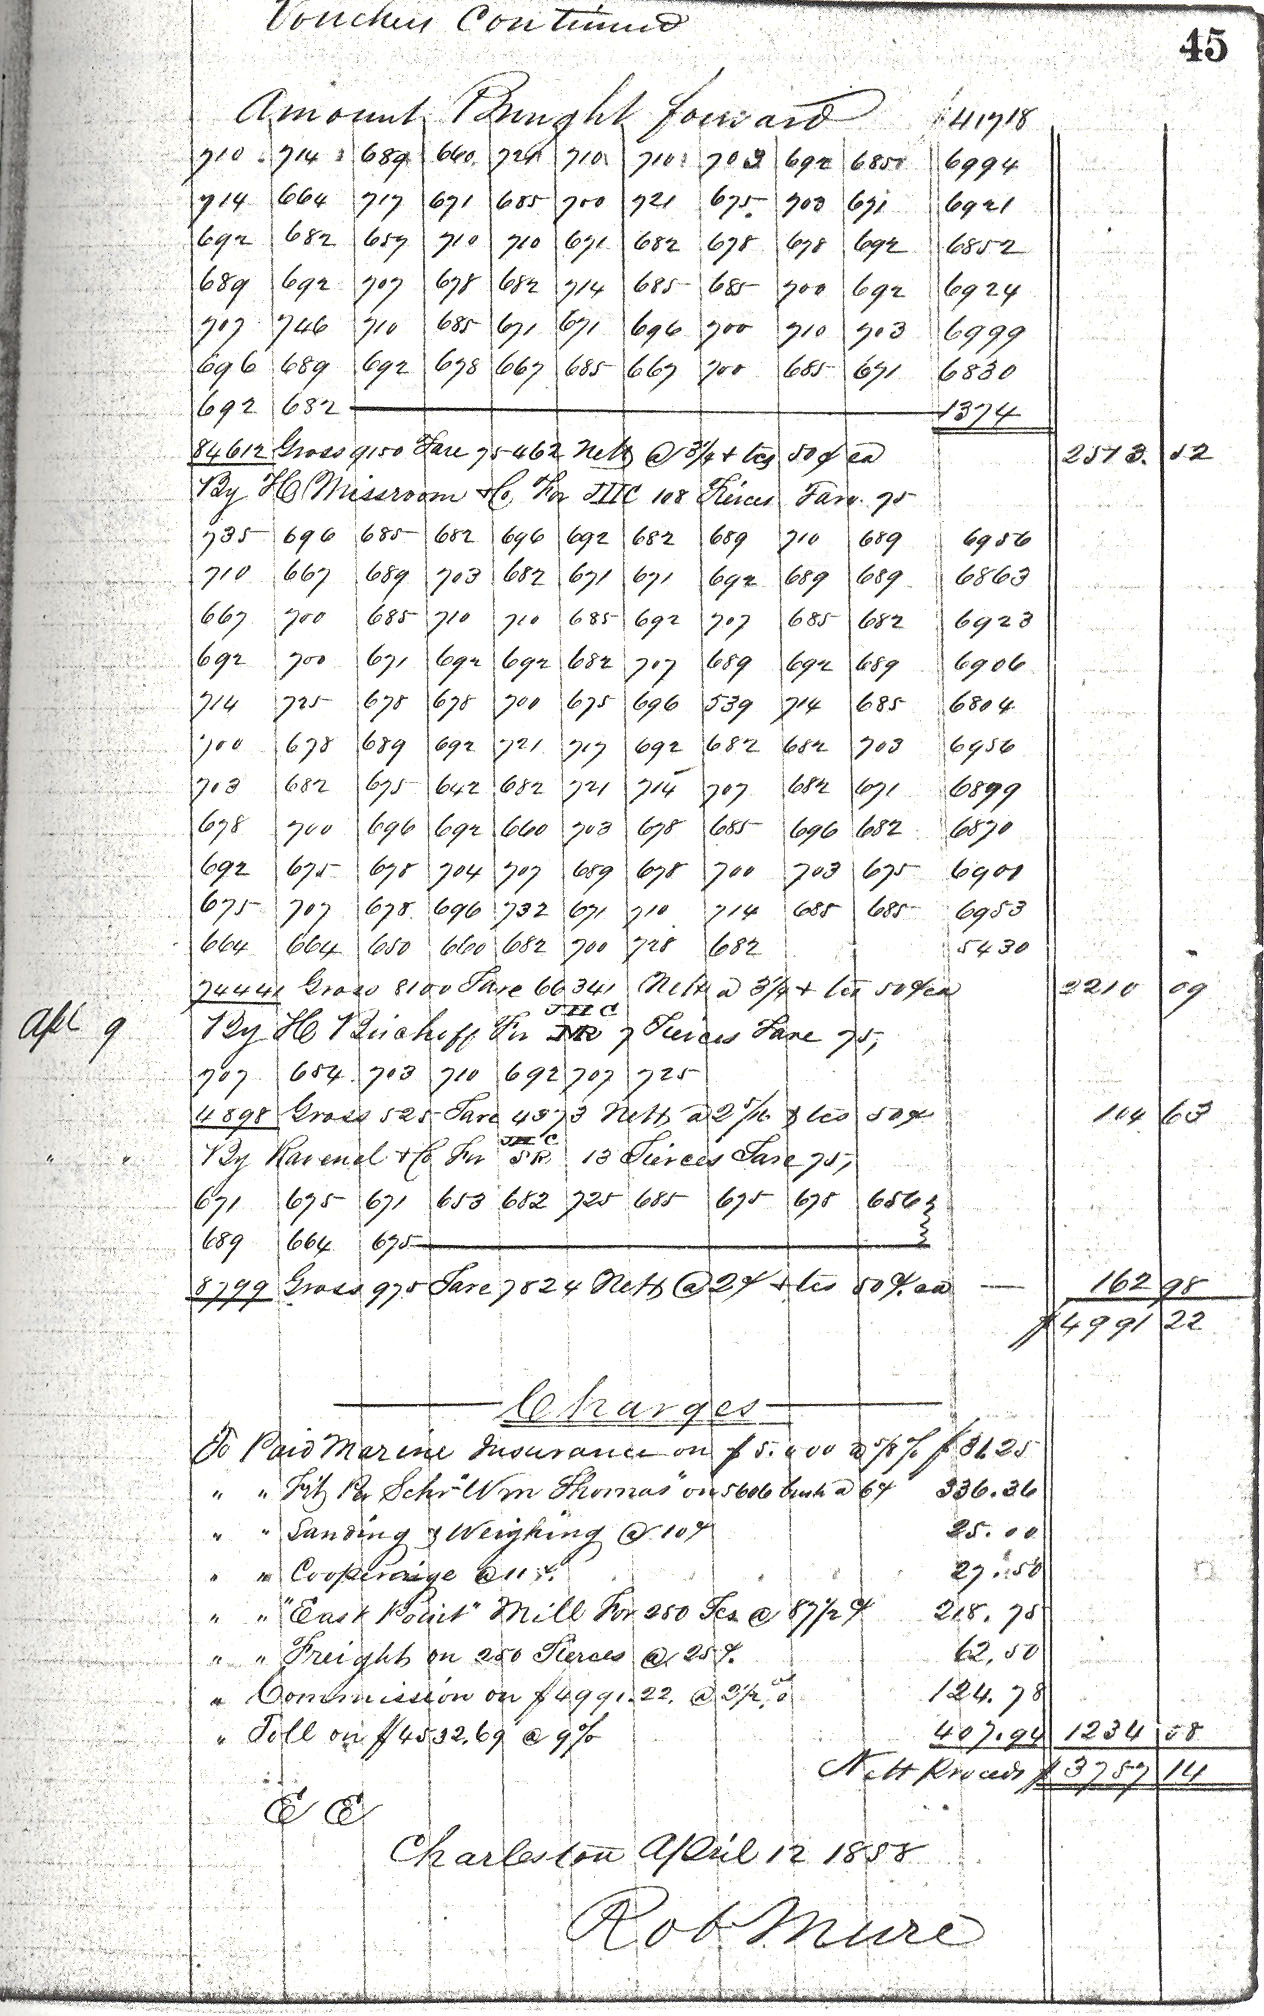 Voucher Continued
45
Amount Brought forward 41718
710 714 689 660 721 710 710 703 692 685 6994
714 664 717 671 685 700 721 675 703 671 6921
692 682 657 710 710 671 682 678 678 692 6852
689 692 707 678 682 714 685 685 700 692 6924
707 746 710 685 671 671 696 700 710 703 6999
696 689 692 678 667 685 667 700 685 671 6830
692 682 1374
84612 Gross 9150 Tare 75462 Nett @ 3 1/4 + tcs 50¢ ea 2573.52
By H C Missroom & Co. For JHC 108 Tierces Tare 75
735 696 685 682 696 692 682 689 710 689 6956
710 667 689 703 682 671 671 692 689 689 6863
667 700 685 710 710 685 692 707 685 682 6923
692 700 671 692 692 682 707 689 692 689 6906
714 725 678 678 700 675 696 539 714 685 6804
700 678 689 692 721 717 692 682 682 703 6956
703 682 675 642 682 721 714 707 682 671 6899
678 700 696 692 660 703 678 685 696 682 6870
692 675 678 704 707 689 678 700 703 675 6901
675 707 678 696 732 671 710 714 685 685 6953
664 664 650 660 682 700 728 682 5430
74441 Gross 8100 Tare 66341 Nett @ 3 1/4 + tcs 50¢ ea 2210 09
Apl 9 By H Bischoff For JHC JR 7 Tierces Tare 75,
707 654 703 710 692 707 725
4898 Gross 525 Tare 4373 Nett @ 2 5/16 & tcs 50¢ 104 63
" " By Ravenel & Co For JHC SR 13 Tierces Tare 75,
671 675 671 653 682 725 685 675 678 656
689 664 675
8799 Gross 975 Tare 7824 Nett @ 2¢ + tcs 50¢ ea — 162 98
$4991 22
Charges
To Paid Marine Insurance on $5.000 @ 5/8 % $31.25
" " Frt Per Schr "Wm Thomas" on 5606 bush @ 6¢ 336.36
" " Landing & Weighing @ 10¢ 25.00
" " Cooperaige @ 11¢. 27.50
" " "East Point" Mill For 250 Tcs @ 87 1/2 ¢ 218.75
" " Freight on 250 Tierces @ 25¢. 62.50
" Commission on $4991.22. @ 2 1/2 % 124.78
" Toll on $4532.69 @ 9% 407.94 1234 08
Nett Proceeds $3757 14
E E
Charleston April 12 1858
Rob Mure